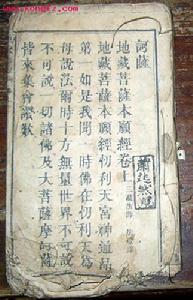 訶薩
地藏菩薩本願經卷上
地藏菩薩本願經忉利天宮神通品
第一如是我聞一時佛在忉利天為
母說法爾時十方無量世界不可說
不可說一切諸佛及大菩薩摩訶薩
皆來集會讚歎